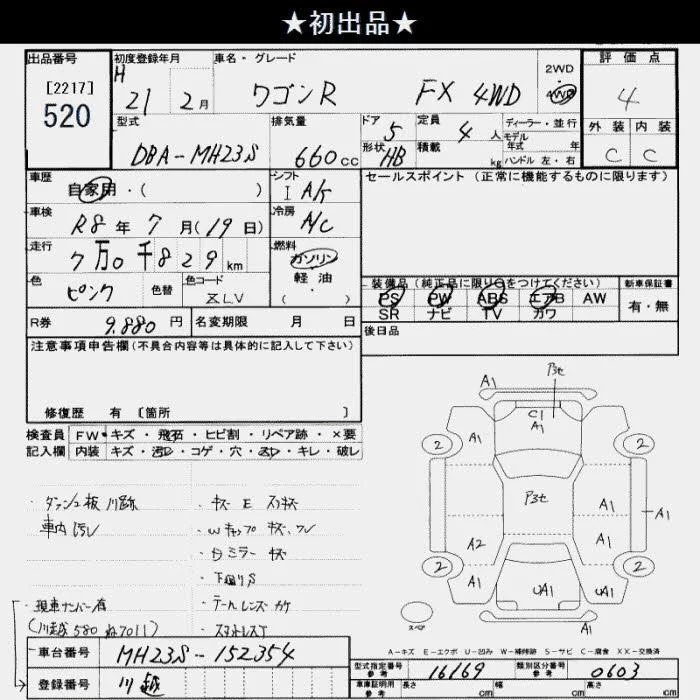 ★初出品★
出品番号
[2217]
520
初度登録年月
H
21 2月
車名・グレード
ワゴンR FX 4WD
2WD
4WD
評価点
4
外装 内装
C C
型式
DBA-MH23S
排気量
660cc
ドア 5
形状 HB
定員 4人
積載 kg
ディーラー・並行
モデル年式 年
ハンドル 左・右
車歴
自家用・( )
シフト
I A/K
車検
R8年7月(19日)
冷房
A/C
走行
7万0千829km
燃料
ガソリン
軽油
( ・ )
色
ピンク
色替
色コード
ZLV
R券 9,880円
名変期限 月 日
セールスポイント(正常に機能するものに限ります)
装備品(純正品に限り○をつけてください)
PS PW ABS エアB AW
SR ナビ TV カワ
新車保証書
有・無
後日品
注意事項申告欄(不具合内容等は具体的に記入して下さい)
修復歴 有 〔箇所 〕
検査員
記入欄
FW・キズ・飛石・ヒビ割・リペア跡・×要
内装・キズ・汚れ・コゲ・穴・スレ・キレ・破レ
・車内汚レ
・キズ E スリキズ
・Wキャップ キズ、ワレ
・Dミラー キズ
・下廻りS
・テールレンズ カケ
・現車ナンバー有
(川越 580 ね7011)
・車台番号
MH23S-152354
・登録番号
川越
A1
C1
A1
A1
2
2
A1
A1
A1
A2
A1
A1
A1
UA1
UA1
2
2
A1
スペア
A-キズ E-エクボ U-凹み W-補修跡 S-サビ C-腐食 XX-交換済
型式指定番号
参考
16169
類別区分番号
参考
0603
車庫証明用
参考
長さ cm
幅 cm
高さ cm